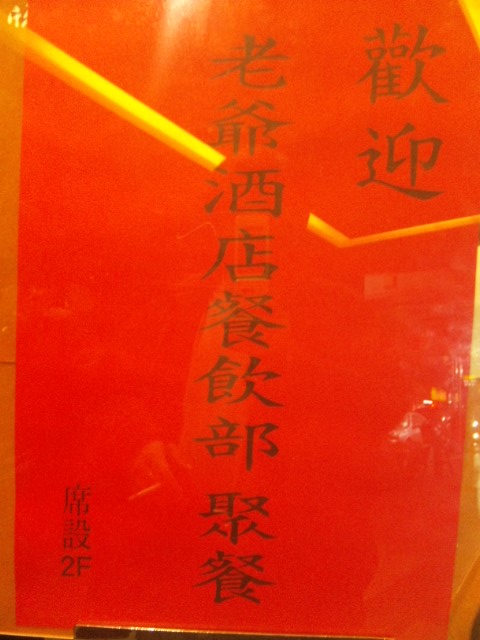 歡迎
老爺酒店餐飲部 聚餐
席設2F